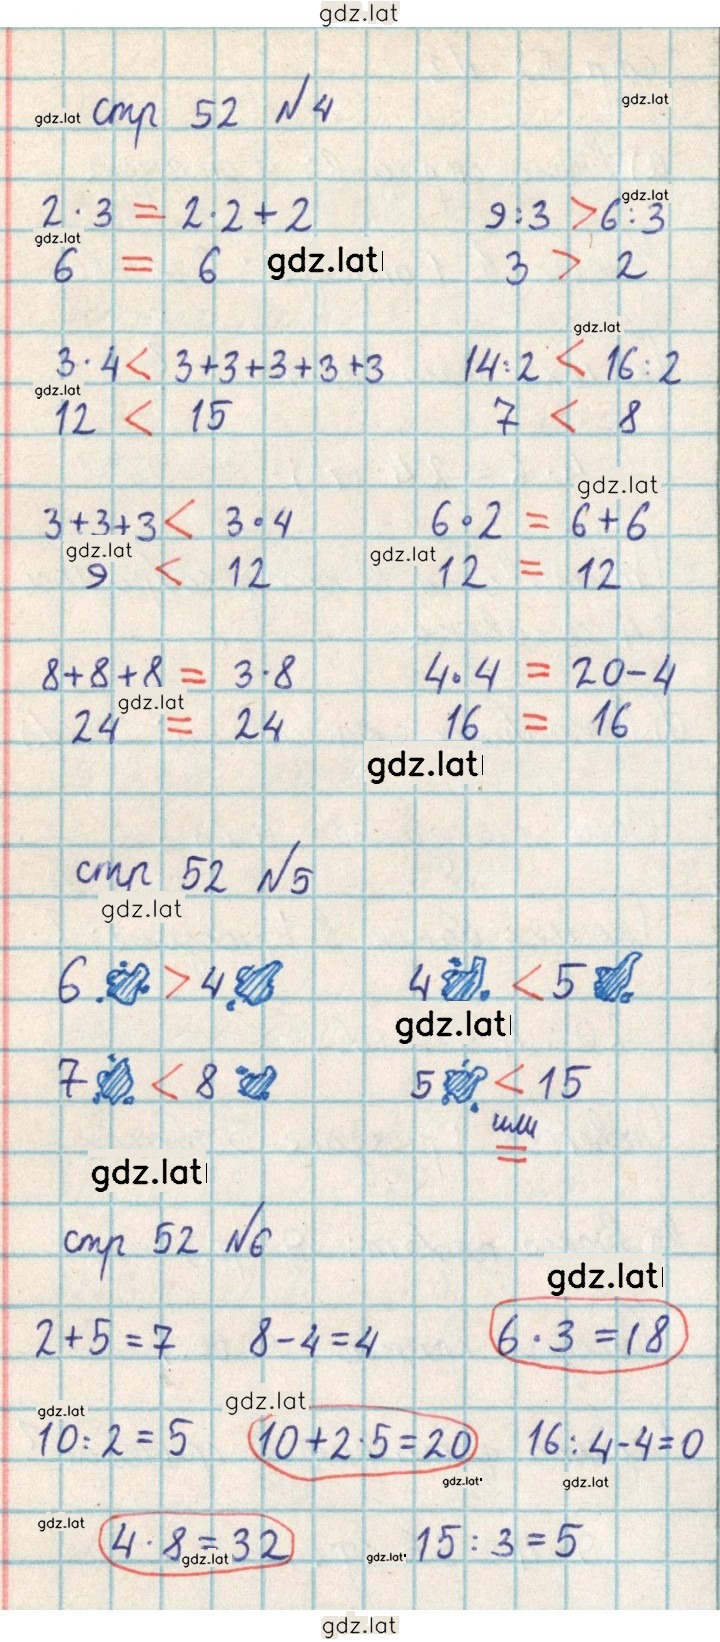 gdz.lat
gdz.lat стр 52 №4 gdz.lat
gdz.lat
2·3 = 2·2+2 9:3 > 6:3
gdz.lat
6 = 6 gdz.lat 3 > 2
gdz.lat
3·4 < 3+3+3+3+3 14:2 < 16:2
gdz.lat
12 < 15 7 < 8
gdz.lat
3+3+3 < 3·4 6·2 = 6+6
gdz.lat gdz.lat
9 < 12 12 = 12
8+8+8 = 3·8 4·4 = 20-4
gdz.lat
24 = 24 16 = 16
gdz.lat
стр 52 №5
gdz.lat
6 > 4 4 < 5
gdz.lat
7 < 8 5 < 15
или
=
gdz.lat
стр 52 №6
gdz.lat
2+5=7 8-4=4 6·3=18
gdz.lat gdz.lat
10:2=5 10+2·5=20 16:4-4=0
gdz.lat gdz.lat
gdz.lat
4·8=32 15:3=5
gdz.lat gdz.lat
gdz.lat